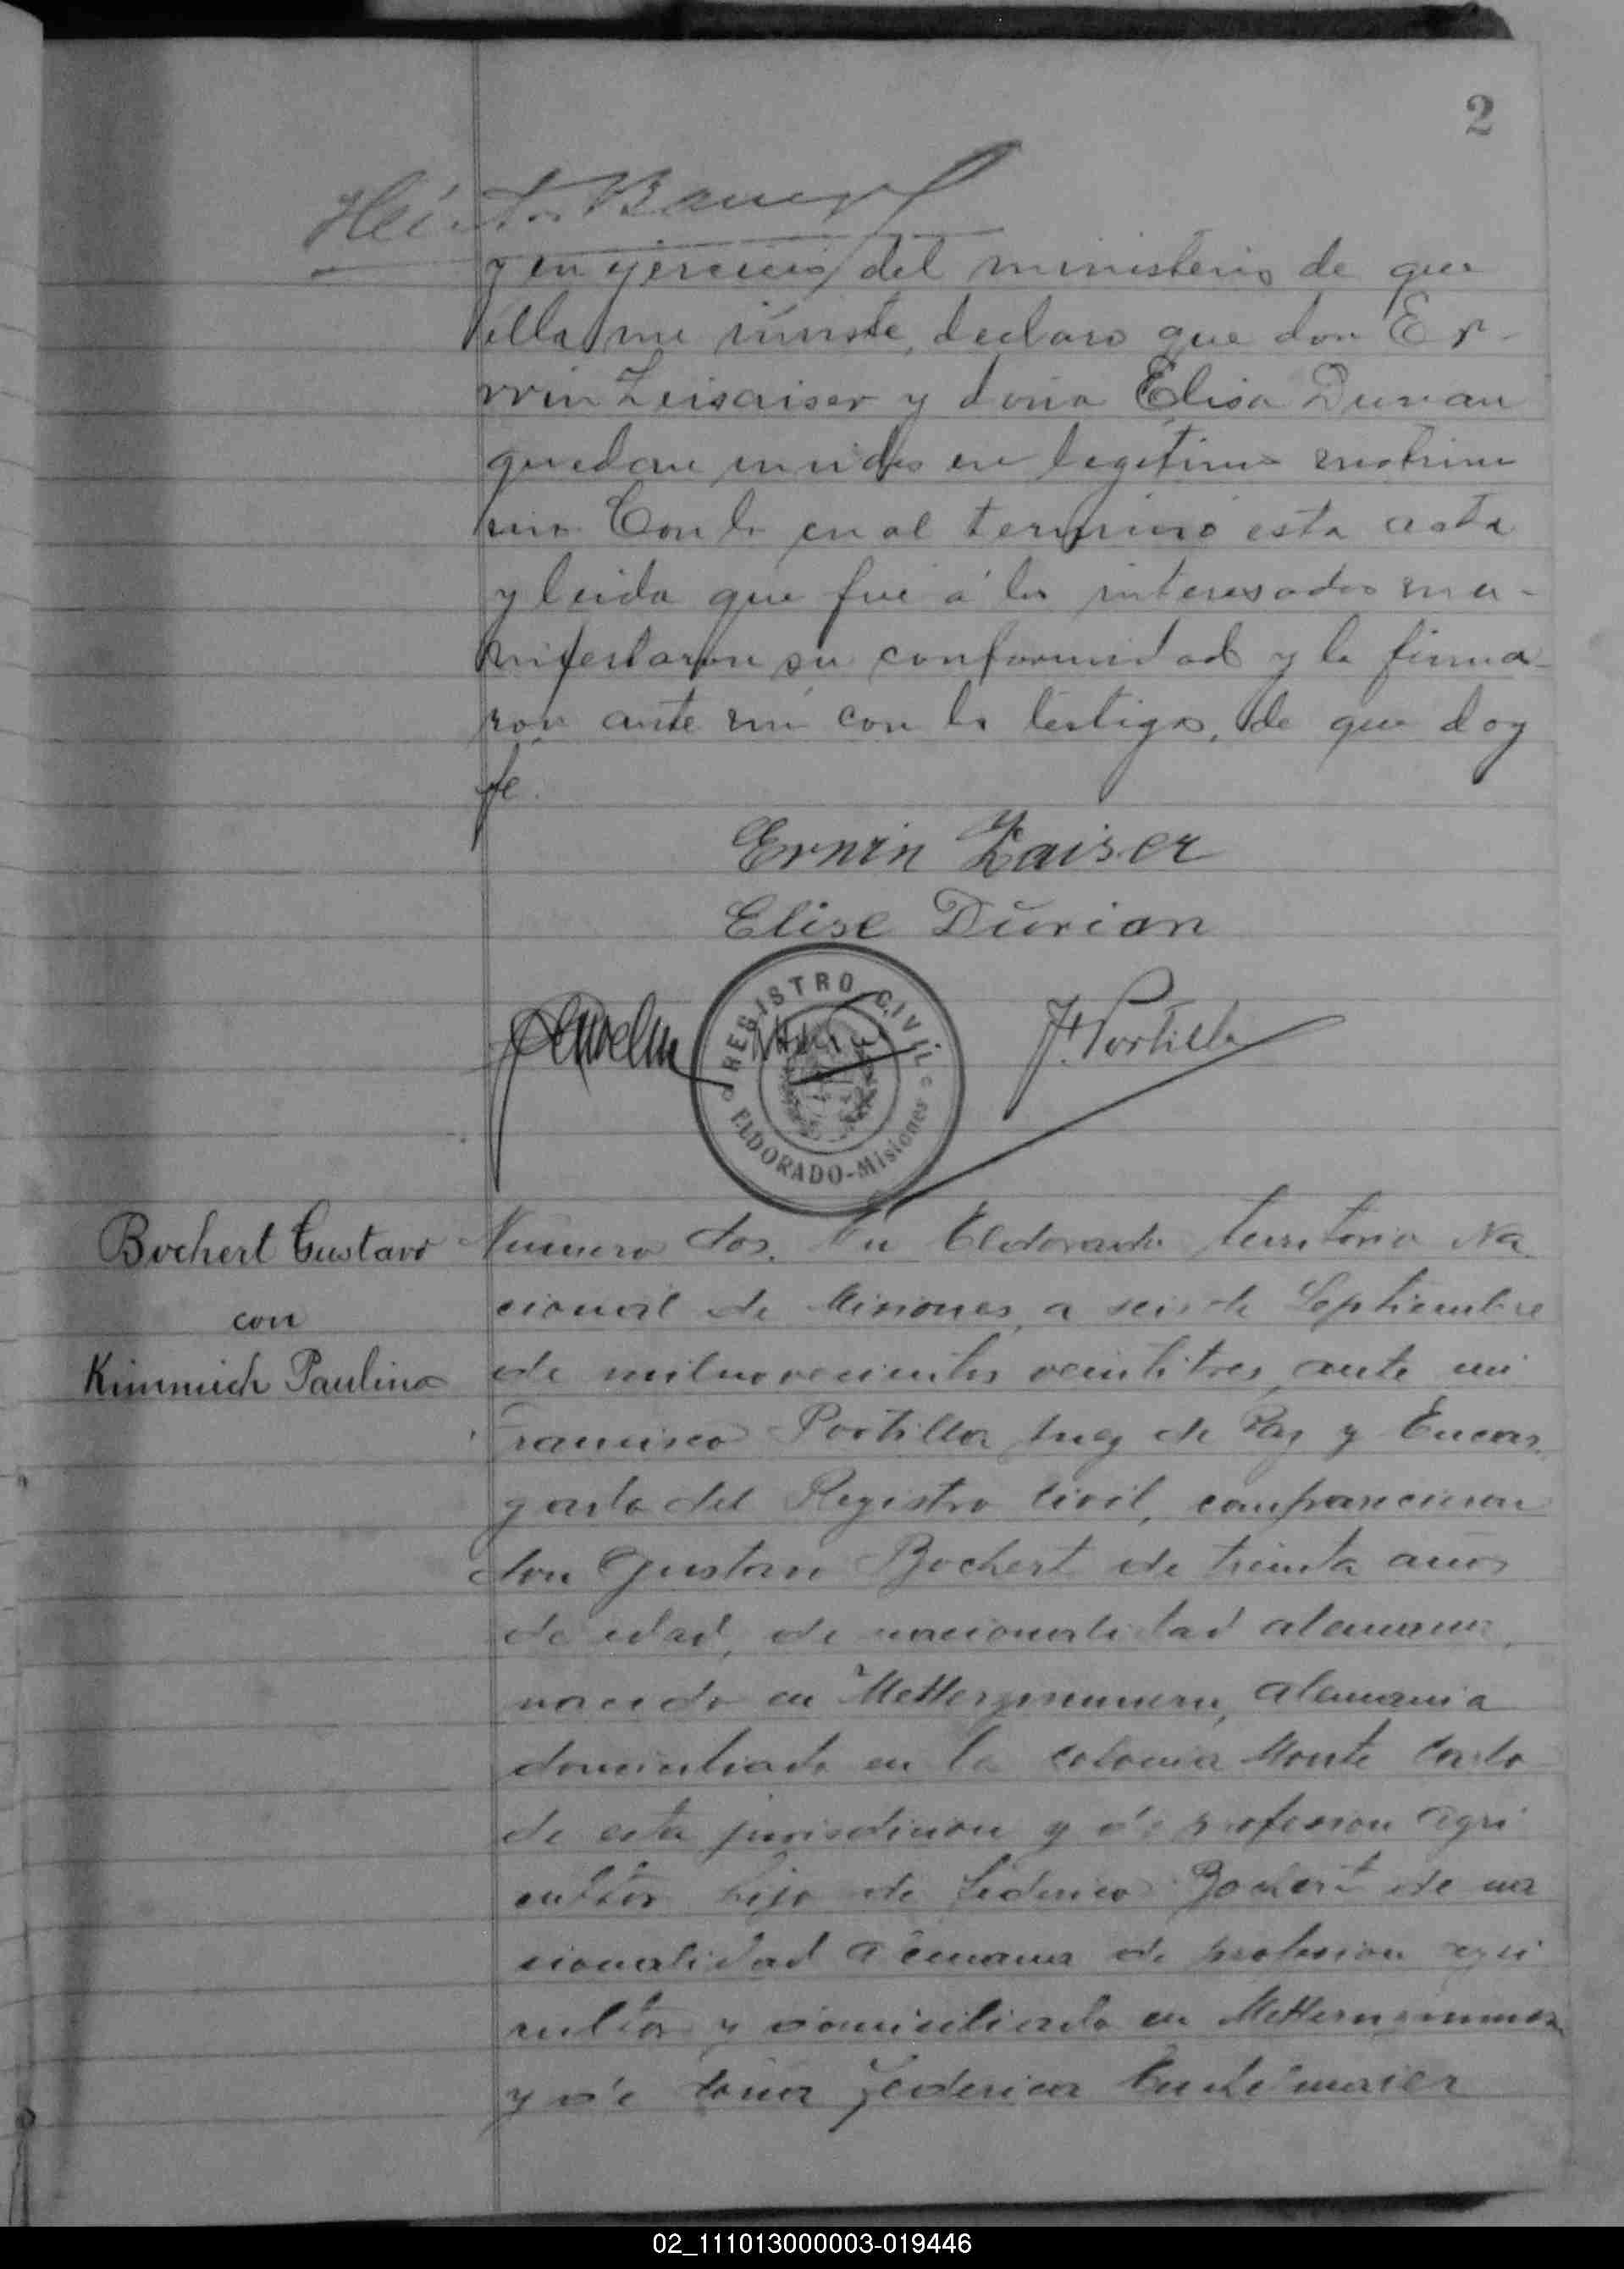 2
y en ejercicio del ministerio de que
ella me inviste, declaro que don Er-
win Zeisaiser y doña Elisa Durian
quedan unidos en legítimo matrimo
nio Con lo cual terminó esta acta
y leida que fué á los interesados ma-
nifestaron su conformidad y la firma-
ron ante mi con los testigos, de que doy
fe.
Erwin Zaiser
Elise Dürian
REGISTRO CIVIL
ELDORADO-Misiones
F. Portilla
Bochert Gustavo
con
Kimmich Paulina
Numero dos. En Eldorado territorio Na
cional de Misiones, a seis de Septiembre
de milnovecientos veintitres, ante mi
Francisco Portilla Juez de Paz y Encar
gado del Registro Civil, comparecieron
don Gustavo Bochert de treinta años
de edad, de nacionalidad alemana,
nacido en Alemania
domiciliado en la colonia Monte Carlo
de esta jurisdicion y de profesion agri
cultor hijo de Federico Bochert de na
cionalidad alemana de profesion agri
cultor y domiciliado en
y de doña Federica
02_111013000003-019446